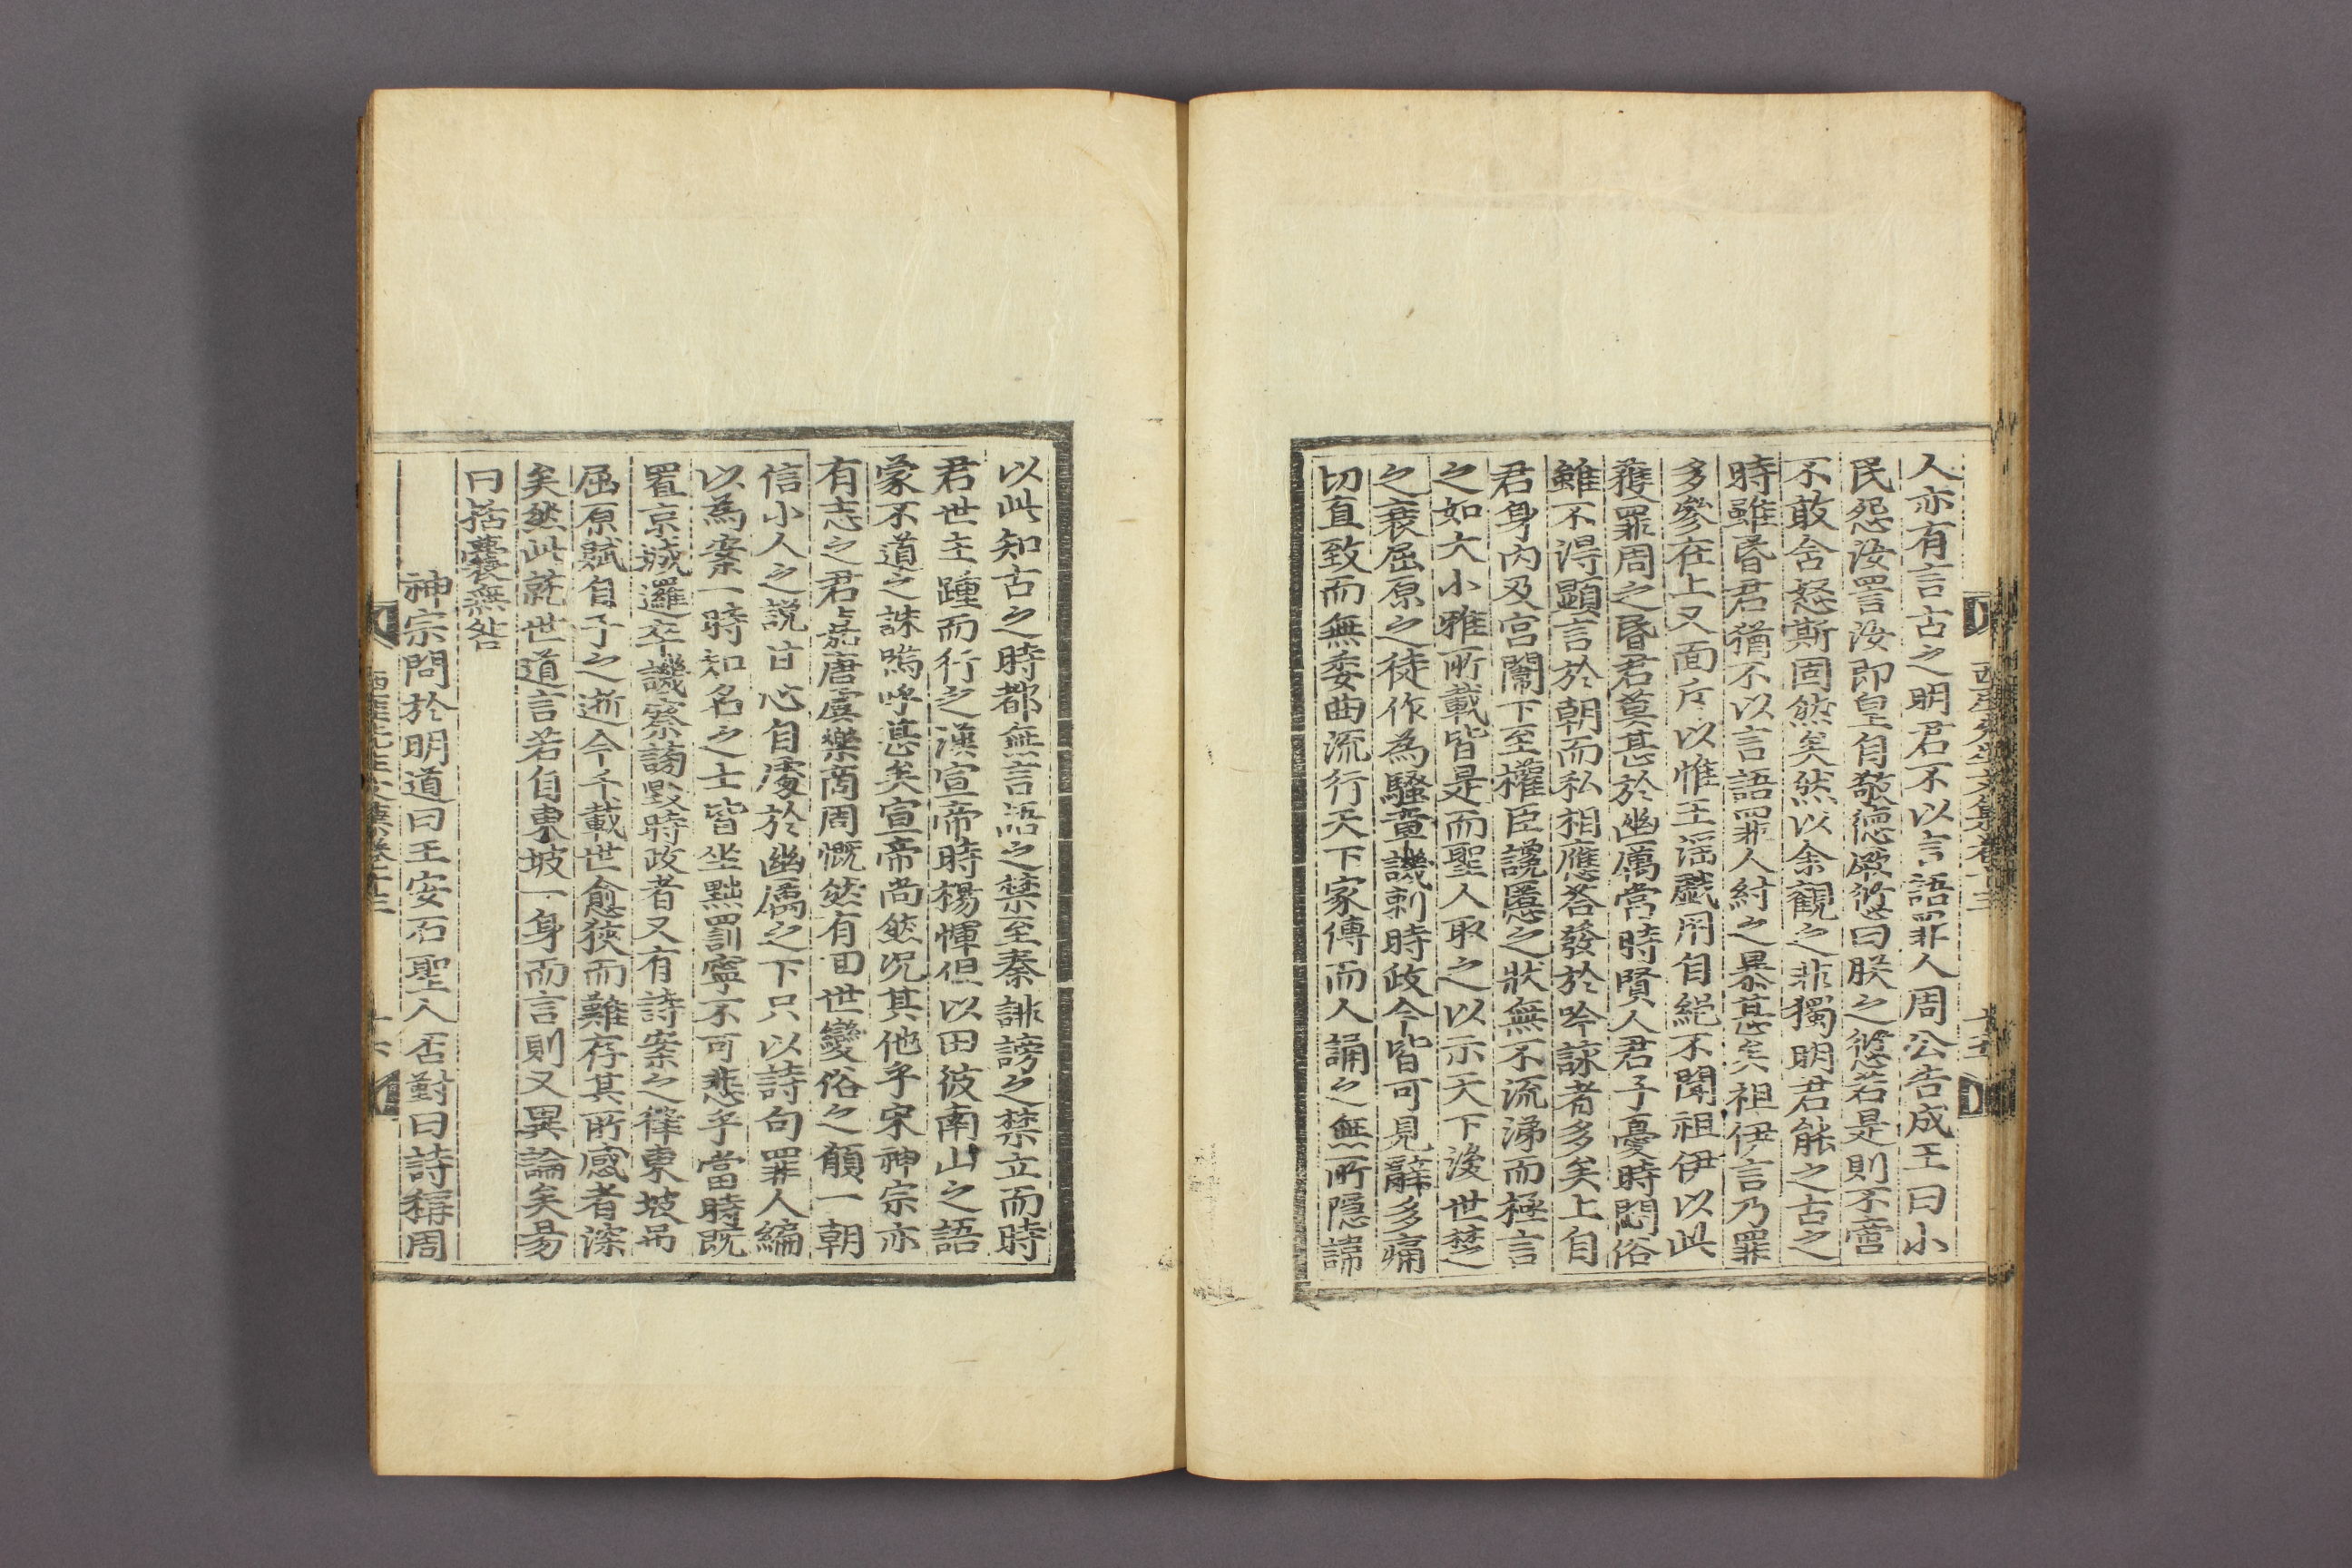 人亦有言古之明君不以言語罪人周公告成王曰小
民怨汝詈汝即皇自敬德厥愆曰朕之愆若是則不啻
不敢含怒斯固然矣然以余觀之非獨明君能之古之
時雖昏君猶不以言語罪人紂之暴甚矣祖伊言乃罪
多參在上又面斥以惟王淫戲用自絕不聞祖伊以此
獲罪周之昏君莫甚於幽厲當時賢人君子憂時悶俗
雖不得顯言於朝而私相應答發於吟詠者多矣上自
君身內及宮闈下至權臣讒慝之狀無不流涕而極言
之如大小雅所載皆是而聖人取之以示天下後世楚
之衰屈原之徒作為騷章譏刺時政令皆可見辭多痛
切直致而無委曲流行天下家傳而人誦之無所隱諱
西厓先生文集卷十三
十五
以此知古之時都無言語之禁至秦誹謗之禁立而時
君世主踵而行之漢宣帝時楊惲但以田彼南山之語
蒙不道之誅嗚呼甚矣宣帝尚然況其他乎宋神宗亦
有志之君嘉唐虞樂商周慨然有回世變俗之願一朝
信小人之說甘心自處於幽厲之下只以詩句罪人編
以為案一時知名之士皆坐黜罰寧不可悲乎當時既
置京城邏卒譏察謗毀時政者又有詩案之律東坡吊
屈原賦自子之逝今千載世愈狹而難存其所感者深
矣然此就世道言若自東坡一身而言則又異論矣易
曰括囊無咎
神宗問於明道曰王安石聖人否對曰詩稱周
西厓先生文集卷十三
十六